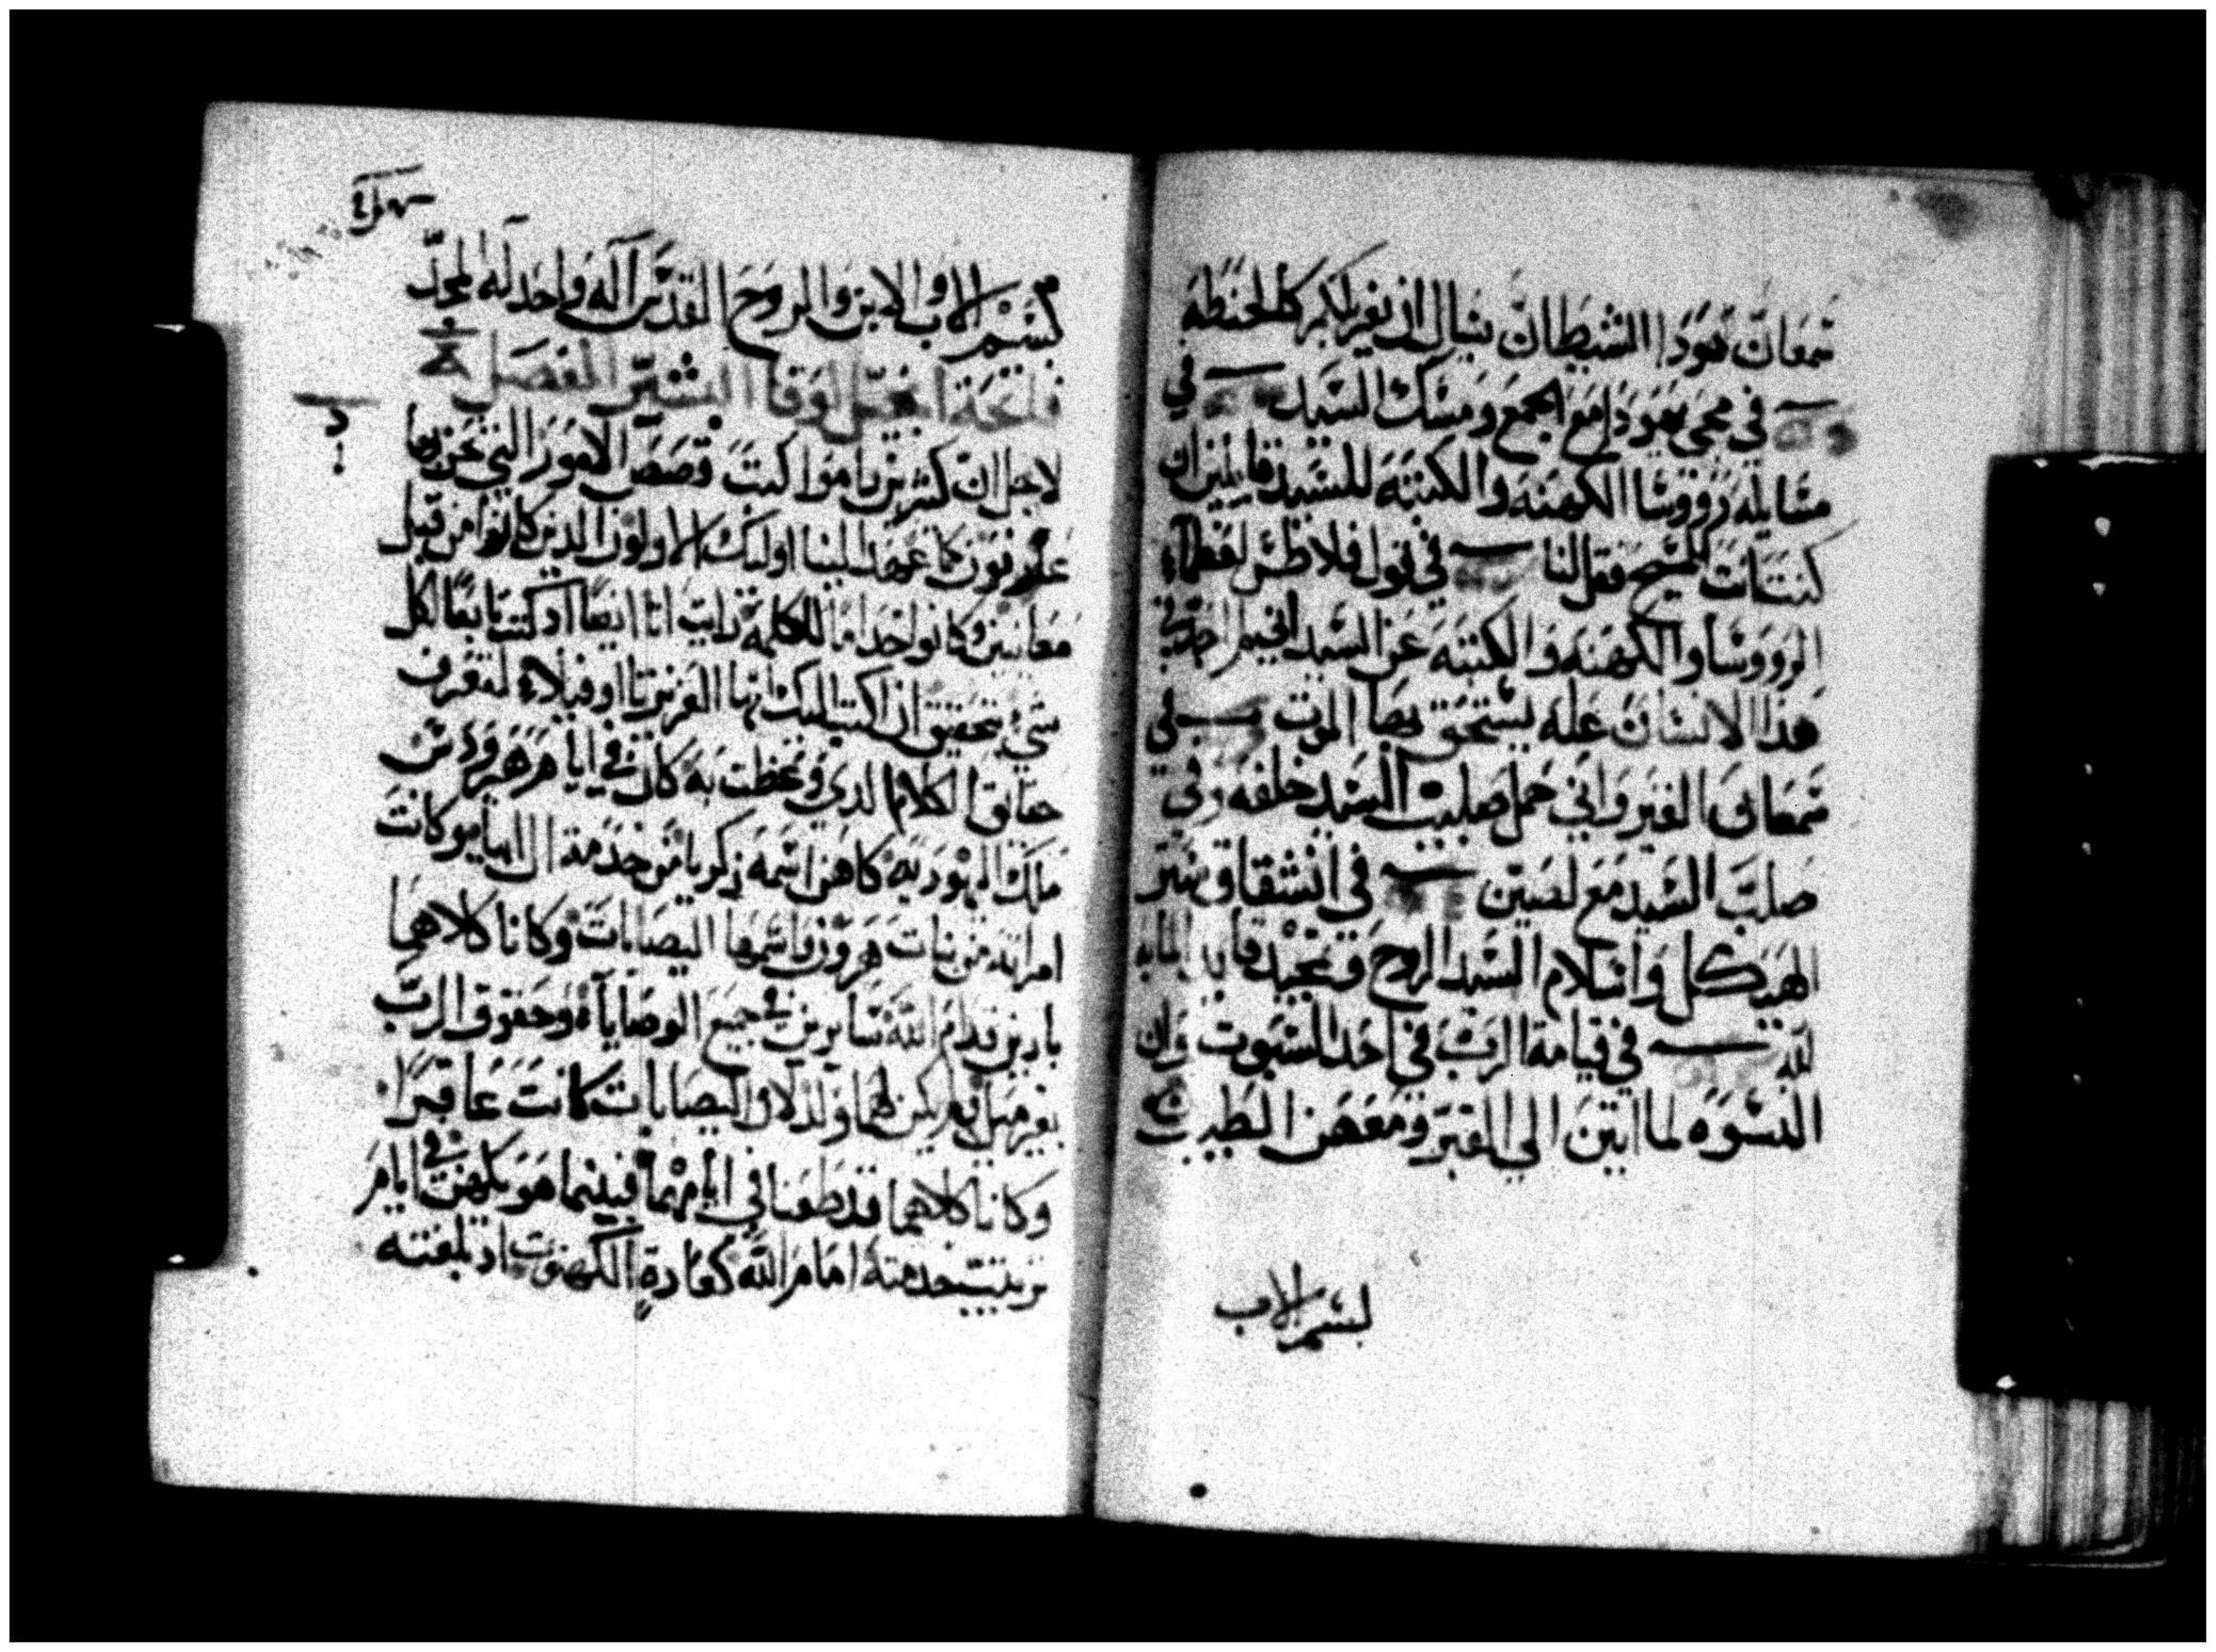 شمعان هودا الشيطان يسال ان يغربلكم كالحنطه
في مجي يهودا مع الجمع ومسك السيد في
مسايله رووسا الكهنه والكتبه للسيد قايلين ان
كنت انت المسيح فقل لنا في قول فلاطس لعظماء
الرووسا والكهنه والكتبه عن السيد اني لم اجد في
هدا الانسان عله يستحق بها الموت في
شمعان القيرواني حمل صليب السيد خلفه وفي
صلب السيد مع لصين في انشقاق ستر
الهيكل واسلام السيد الروح وتمجيد قايد المايه
لله في قيامة الرب في احد السبوت وان
النسوه لما اتين الي القبر ومعهن الطيب
بسم الاب
بسم الاب والابن والروح القدس اله واحد له المجد
فاتحة انجيل لوقا البشير الفصل
لاجل ان كثيرين راموا كتب قصص الامور التي نحن بها
عارفون كما عهد الينا اوليك الاولون الدين كانوا من قبل
معاينين وكانوا خداما للكلمة رايت انا ايضا اد كنت تابعا لكل
شيء بتحقيق ان اكتب اليك ايها العزيز تااوفيلاء لتعرف
حقايق الكلام الدي وعظت به كان في ايام هيرودس
ملك اليهوديه كاهن اسمه زكريا من خدمة ال ابيا وكانت
امراته من بنات هرون واسمها اليصابات وكانا كلاهما
بارين قدام الله سايرين في جميع الوصايا وحقوق الرب
بغير ميل ولم يكن لهما ولد لان اليصابات كانت عاقرا
وكانا كلاهما قد طعنا في ايامهما فبينما هو يكهن في ايام
ترتيب خدمته امام الله كعادة الكهنوت اد بلغته